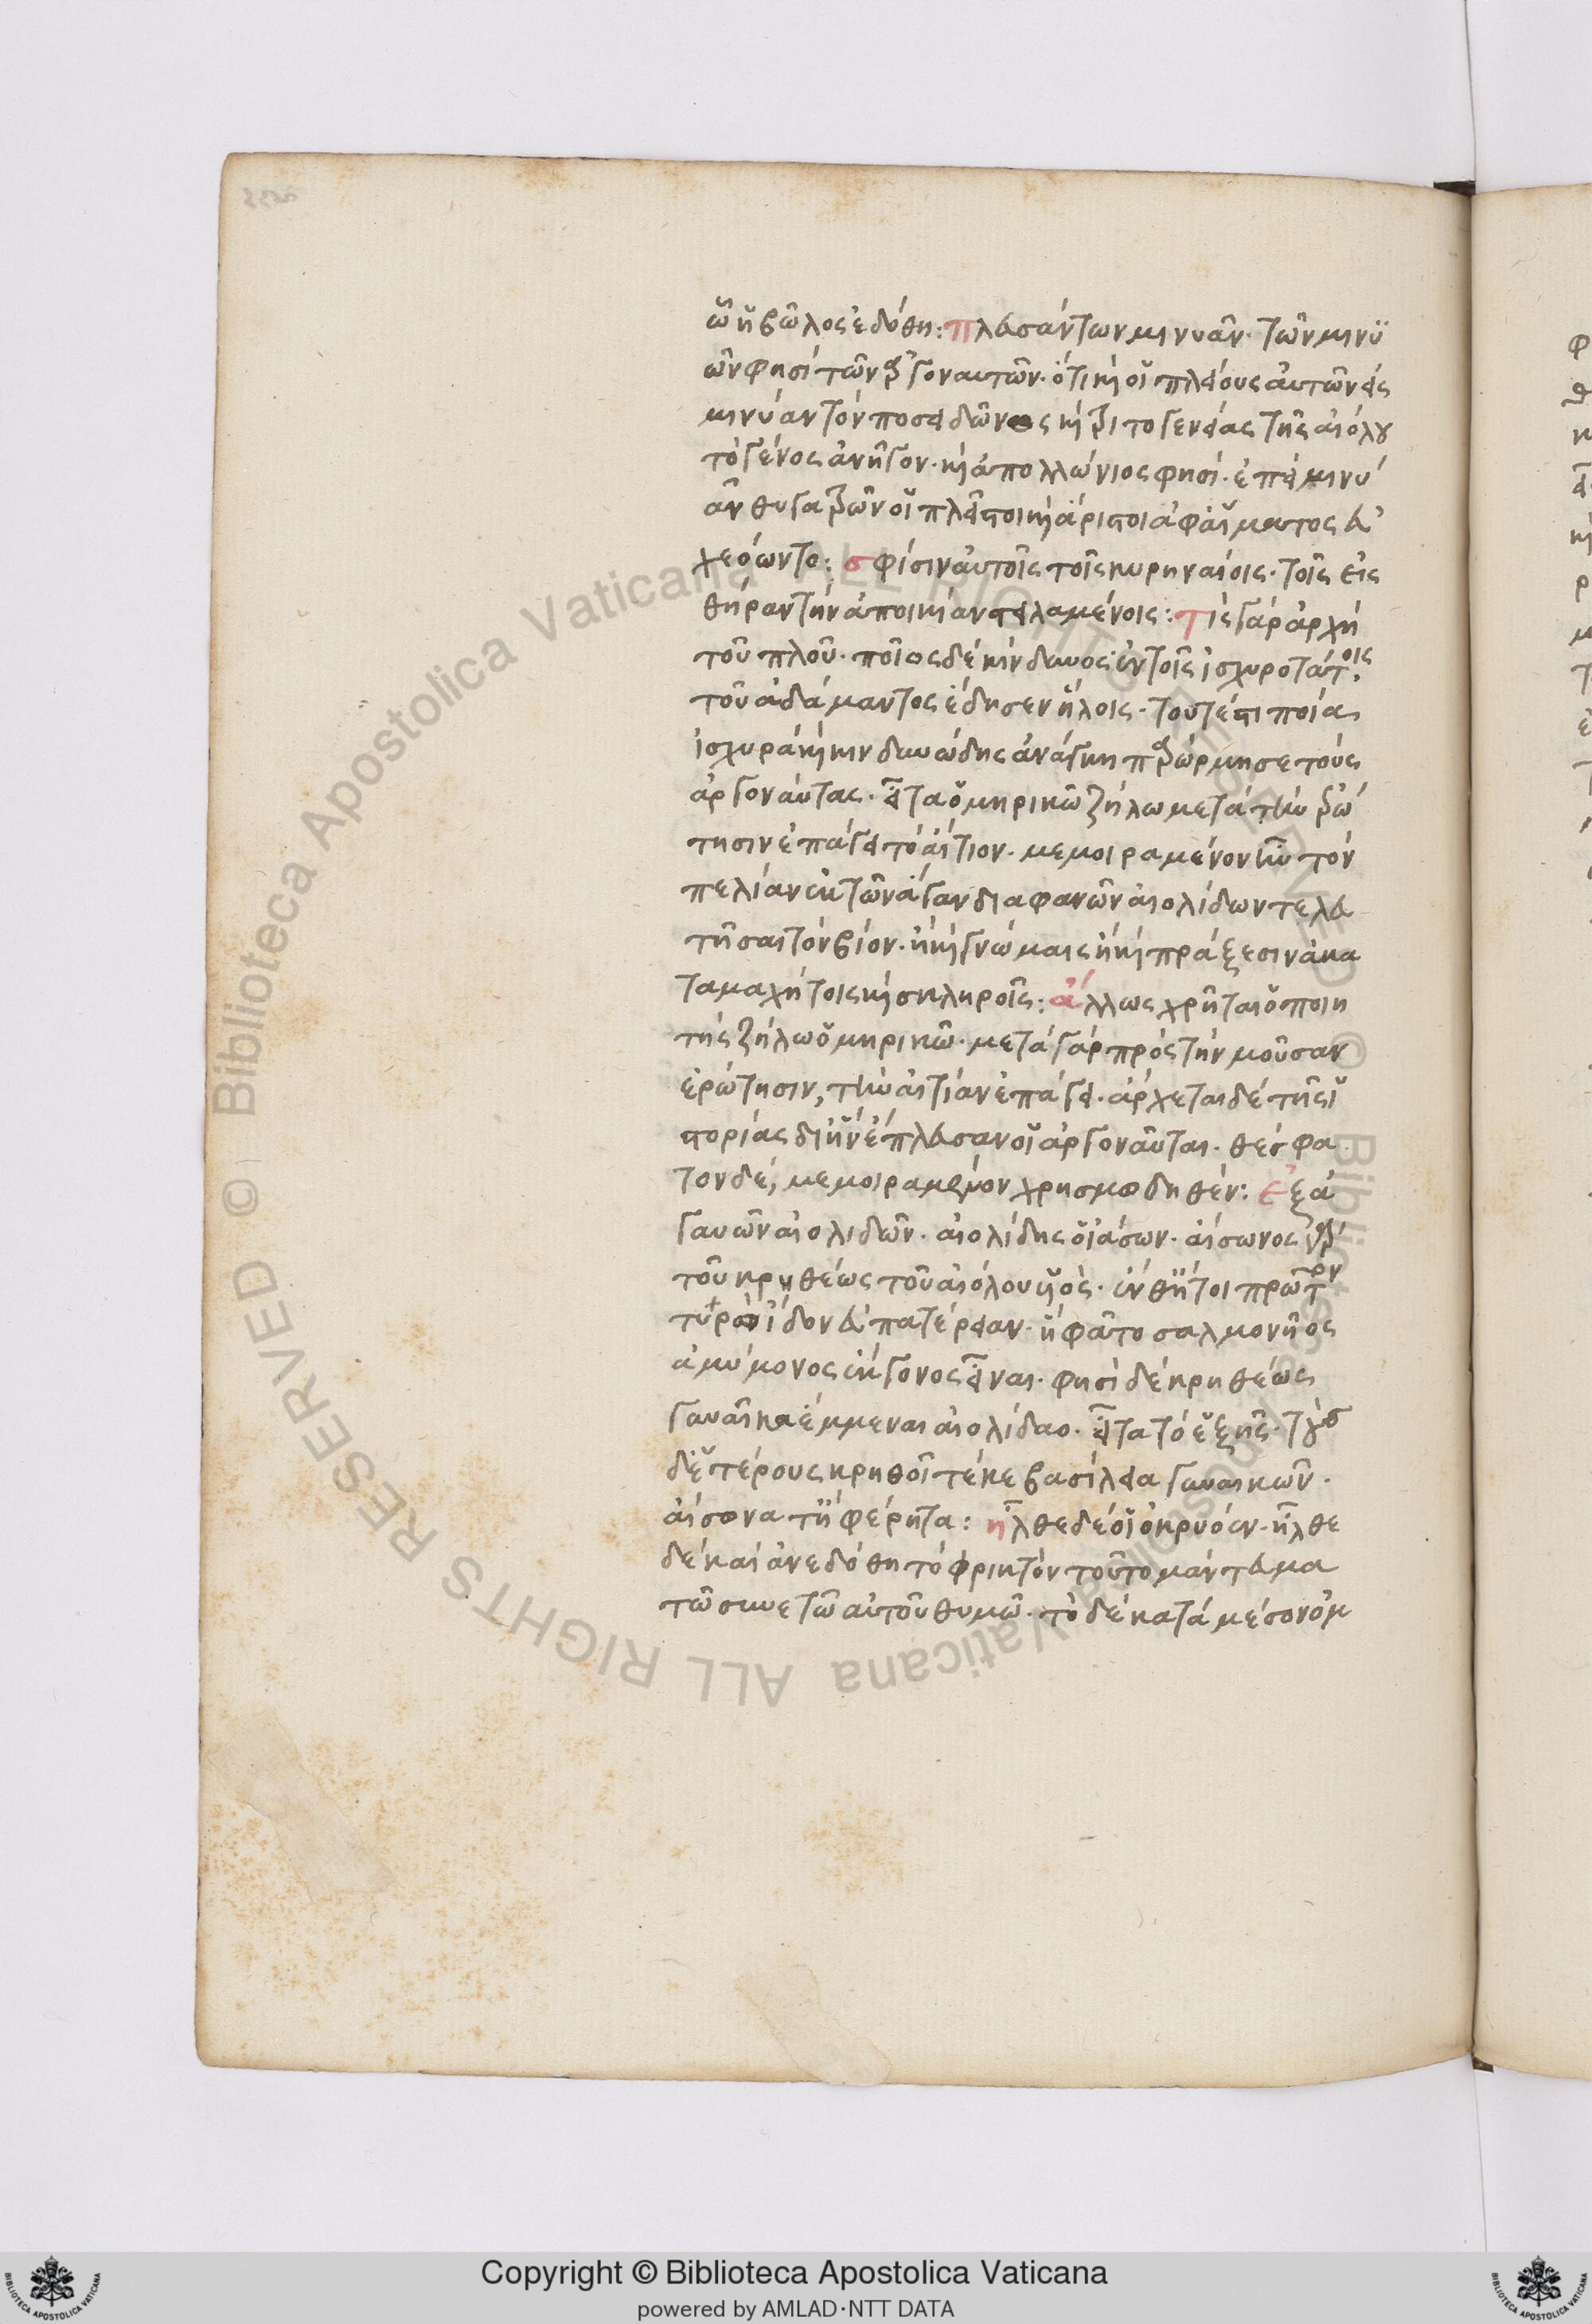 ᾧ ἡ βῶλος ἐδόθη: πλευσάντων μινυᾶν· τῶν μινυ
ῶν φησὶ τῶν ἀργοναυτῶν· ὅτι καὶ οἱ πλείους αὐτῶν εἰς
μινύαν τὸν ποσειδῶνος καὶ τριτογενείας τῆς αἰόλου
τὸ γένος ἀνῆγον· καὶ ἀπολλώνιος φησί· ἐπεὶ μινύ
αο θυγατρῶν οἱ πλεῖστοι καὶ ἄριστοι ἀφ' αἵματος εὐ
χετόωντο: σφίσιν αὐτοῖς τοῖς κυρηναίοις· τοῖς εἰς
θήραν τὴν ἀποικίαν στειλαμένοις: τίς γὰρ ἀρχὴ
τοῦ πλοῦ· ποῖος δὲ κίνδυνος ἐν τοῖς ἰσχυροτάτοις
τοῦ ἀδάμαντος ἔδησεν ἥλοις· τουτέστι ποία
ἰσχυρὰ καὶ κινδυνώδης ἀνάγκη παρώρμησε τοὺς
ἀργοναύτας· εἶτα ὁμηρικῷ ζήλῳ μετὰ τὴν ἐρώ
τησιν ἐπάγει τὸ αἴτιον· μεμοιραμένον ἦν τὸν
πελίαν ἐκ τῶν ἄγαν διαφανῶν αἰολίδων τελευ
τῆσαι τὸν βίον· ἢ καὶ γνώμαις ἢ καὶ πράξεσιν ἀκα
ταμαχήτοις καὶ σκληροῖς: ἄλλως χρῆται ὁ ποιη
τὴς ζήλῳ ὁμηρικῷ· μετὰ γὰρ πρὸς τὴν μοῦσαν
ἐρώτησιν, τὴν αἰτίαν ἐπάγει· ἄρχεται δὲ τῆς ἱ
στορίας δι' ἣν ἔπλευσαν οἱ ἀργοναῦται· θέσφα
τον δέ, μεμοιραμένον χρησμῳδηθέν: ἐξ ἀ
γαυῶν αἰολιδῶν· αἰολίδης ὁ ἰάσων· αἴσωνος γὰρ
τοῦ κρηθέως τοῦ αἰόλου υἱός· ἔνθ' ἤτοι πρῶτον
τυρὼ ἴδον εὐπατέρειαν· ἣ φάτο σαλμονῆος
ἀμύμονος ἔκγονος εἶναι· φησὶ δὲ κρηθέως
γυναῖκα ἔμμεναι αἰολίδαο· εἶτα τὸ ἑξῆς· τοὺς
δ' ἑτέρους κρηθοῖ τέκε βασίλεια γυναικῶν·
αἴσονα τ' ἠ φέρητα: ἦλθε δέ οἱ ὀκρυόεν· ἦλθε
δὲ καὶ ἀνεδόθη τὸ φρικτὸν τοῦτο μάντευμα
τῷ συνετῷ αὐτοῦ θυμῷ· τὸ δὲ κατὰ μέσον ὀμ
Biblioteca Apostolica Vaticana ALL RIGHTS RESERVED ©
Copyright © Biblioteca Apostolica Vaticana
powered by AMLAD·NTT DATA